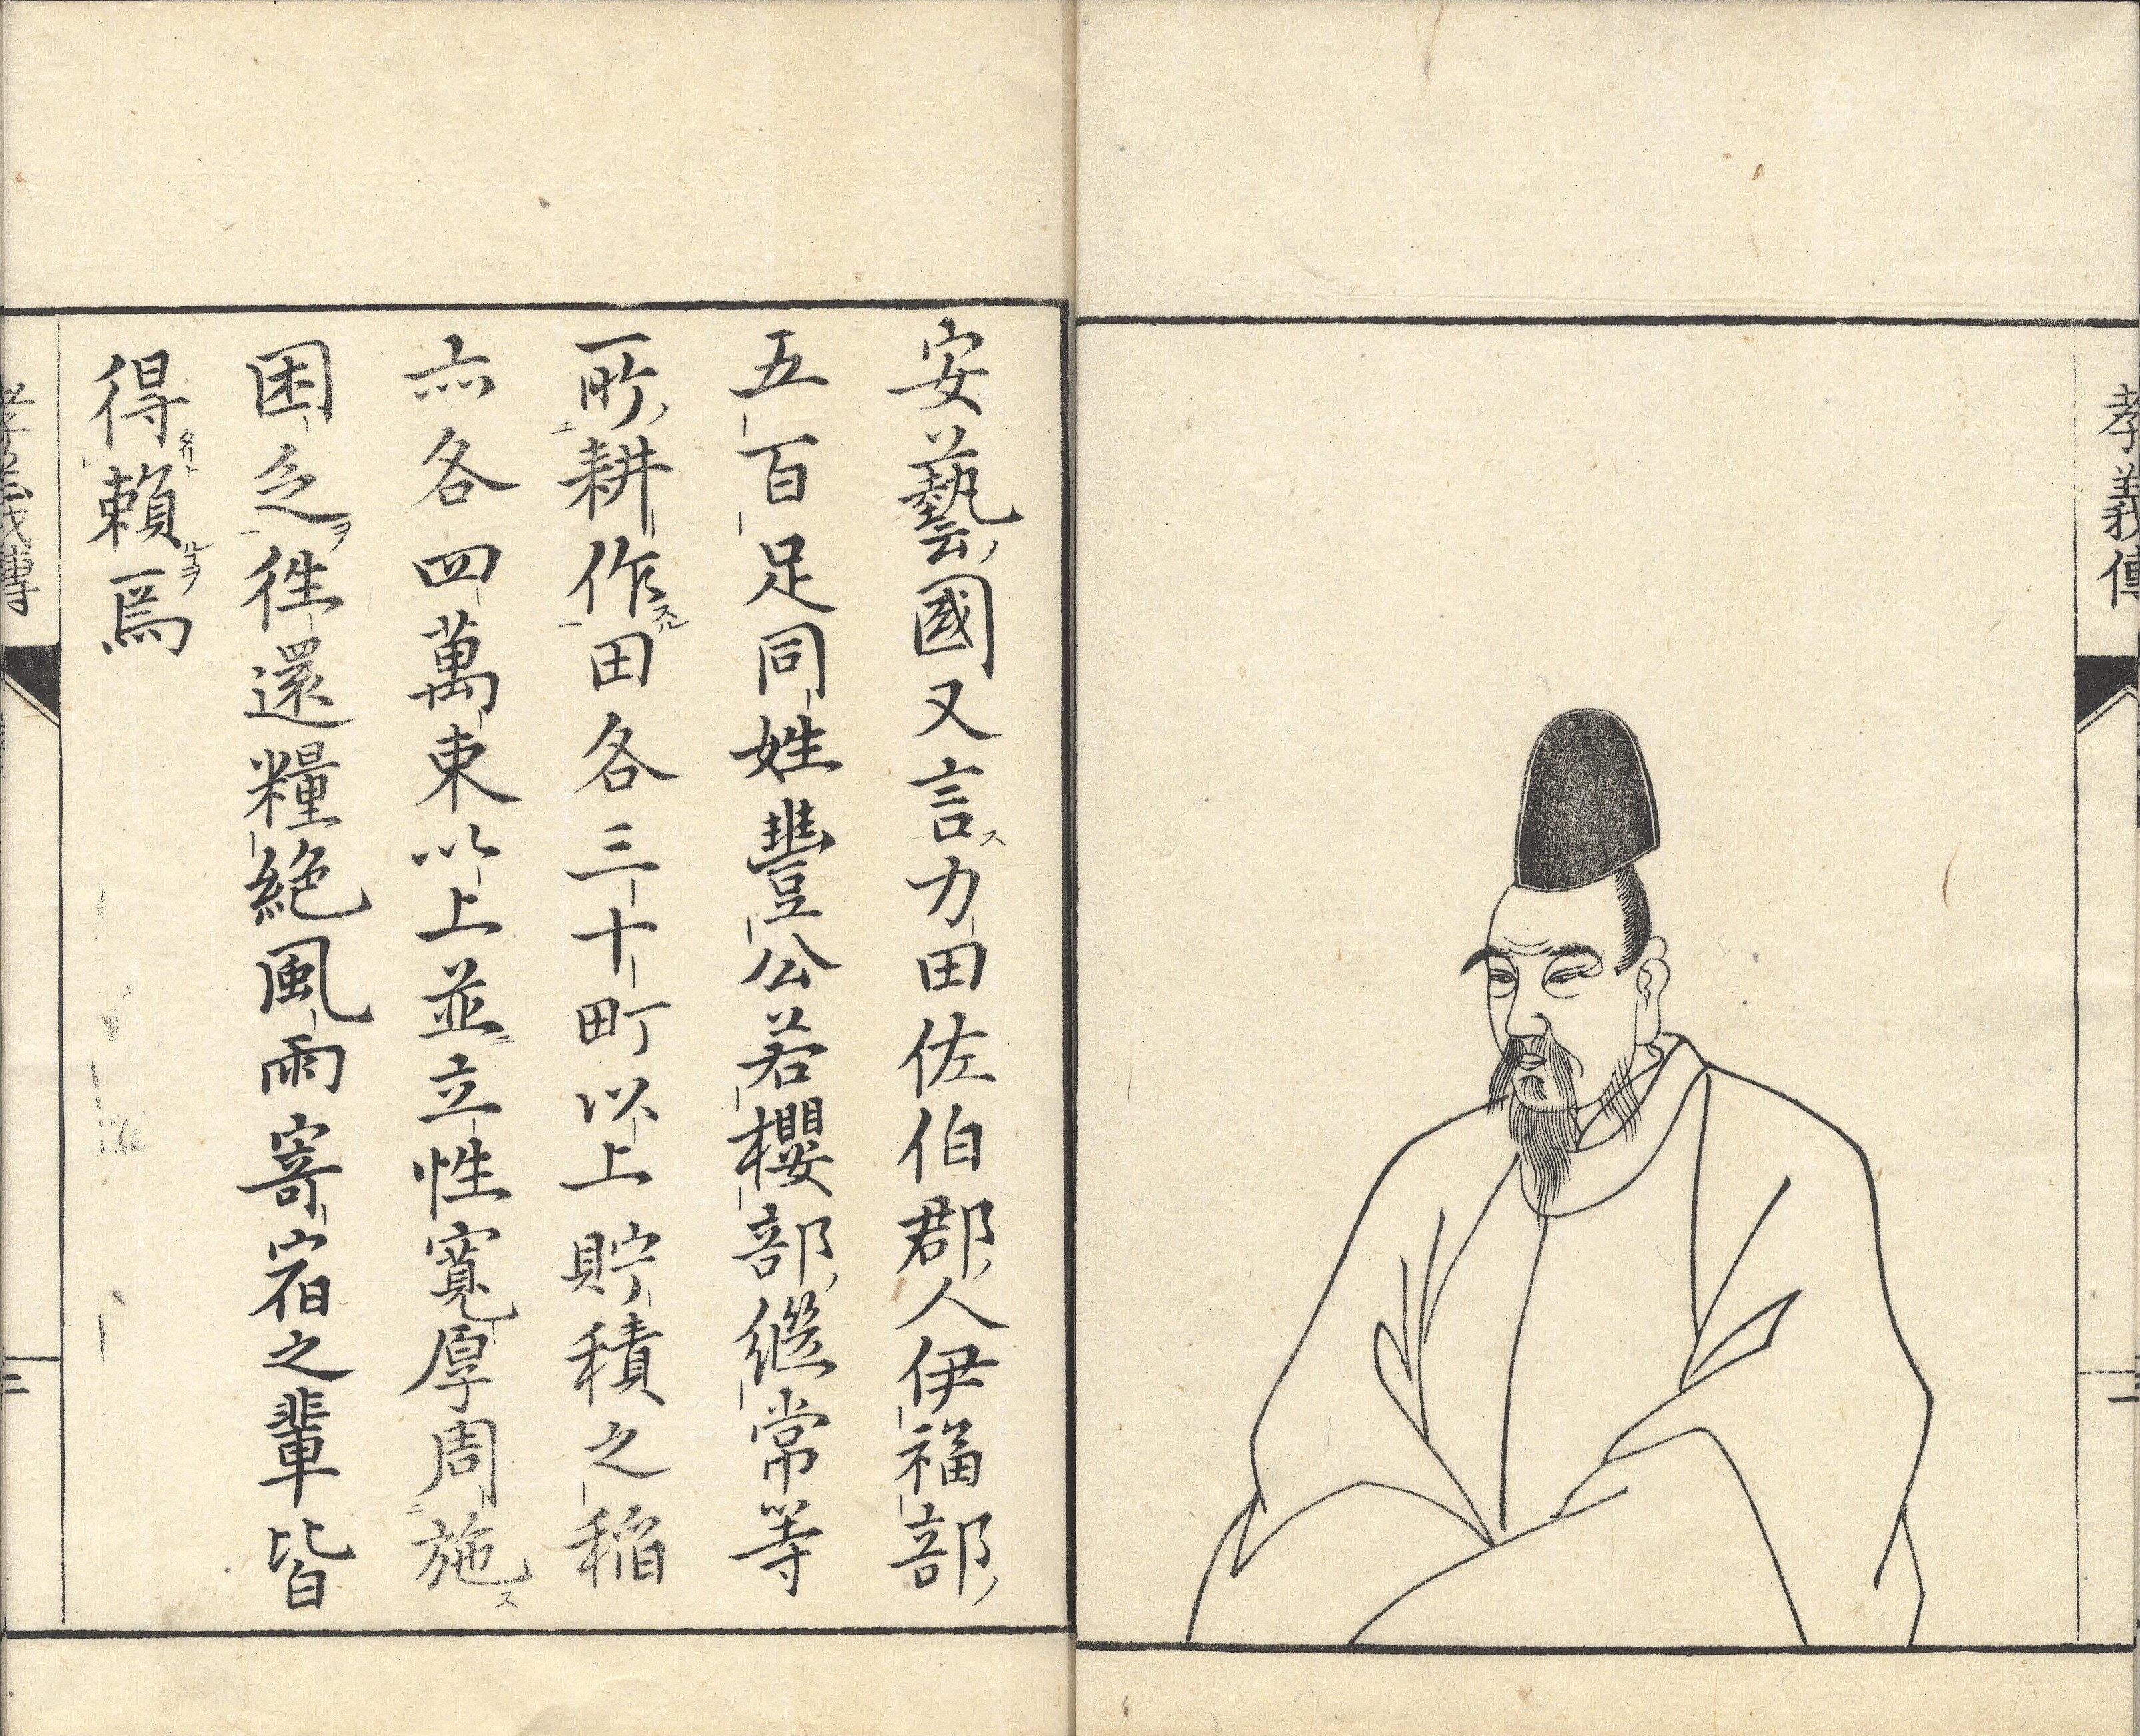 孝義傳
二
安藝國又言力田佐伯郡人伊福部
五百足同姓豐公若櫻部継常等
所耕作田各三十町以上貯積之稲
亦各四萬束以上並立性寬厚周施
困乏往還糧絶風雨寄宿之輩皆
得賴焉
孝義傳